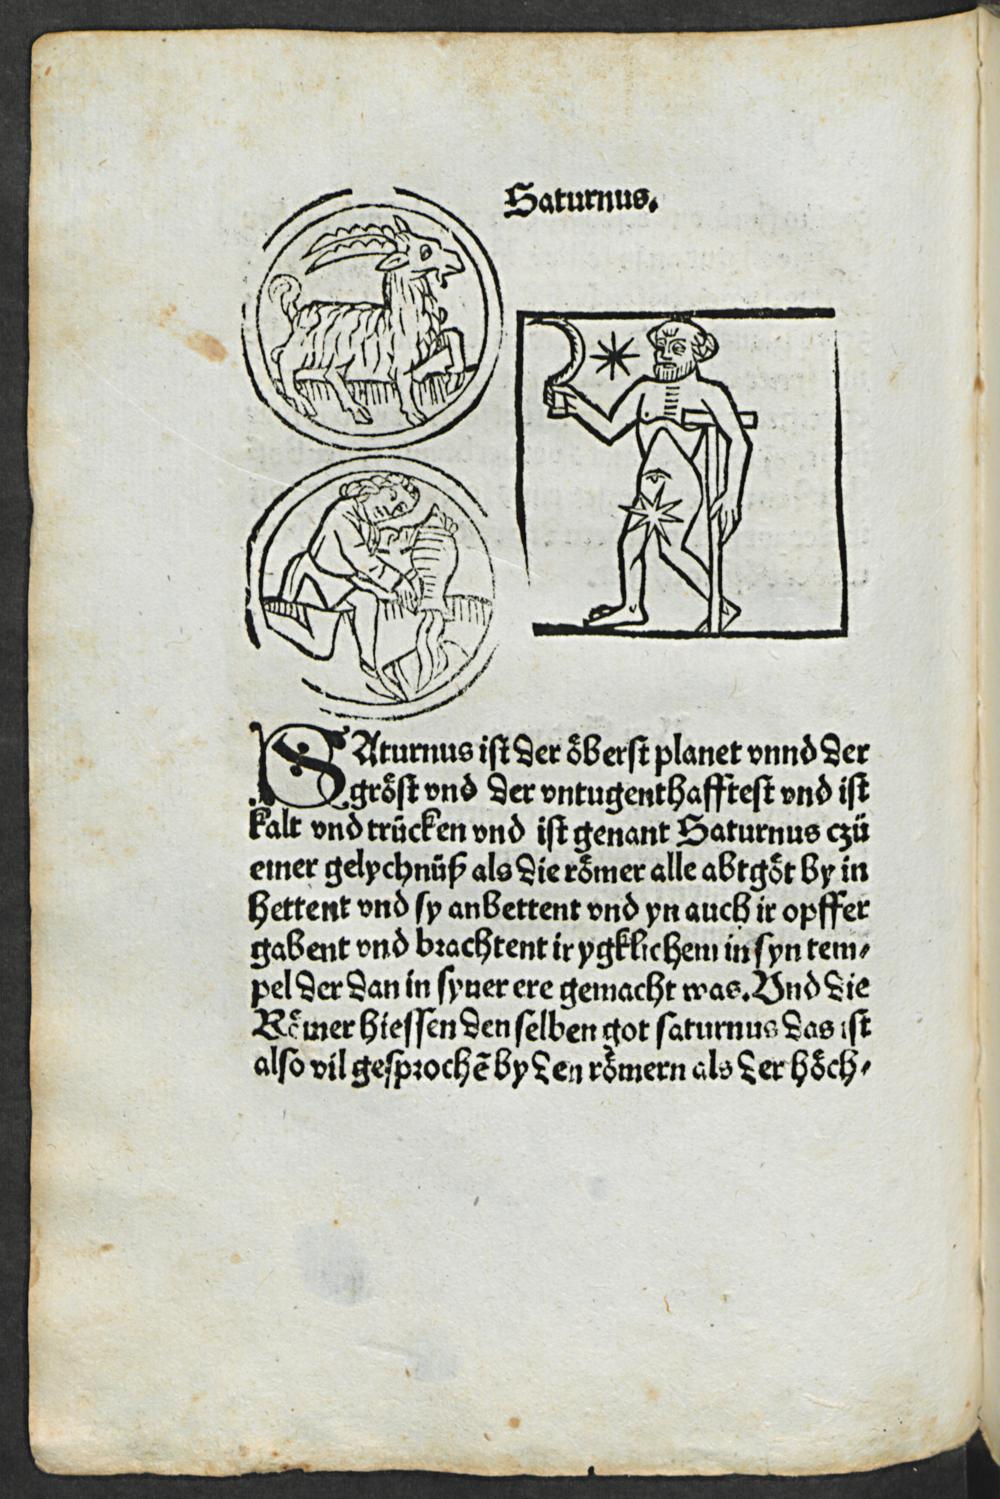 Saturnus.
SAturnus ist der öberst planet vnnd der
gröst vnd der vntugenthafftest vnd ist
kalt vnd trücken vnd ist genant Saturnus czü
einer gelychnüß als die römer alle abtgöt by in
hettent vnd sy anbettent vnd yn auch ir opffer
gabent vnd brachtent ir ygklichem in syn tem⸗
pel der dan in syner ere gemacht was. Vnd die
Römer hiessen den selben got saturnus das ist
also vil gesprochē by den römern als der höch⸗